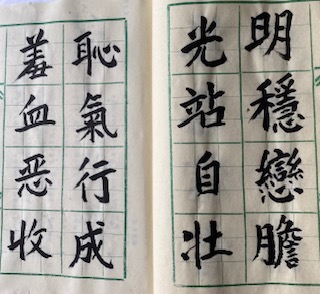 羞恥
血氣
恶行
收成
光明
站穩
自戀
壯膽